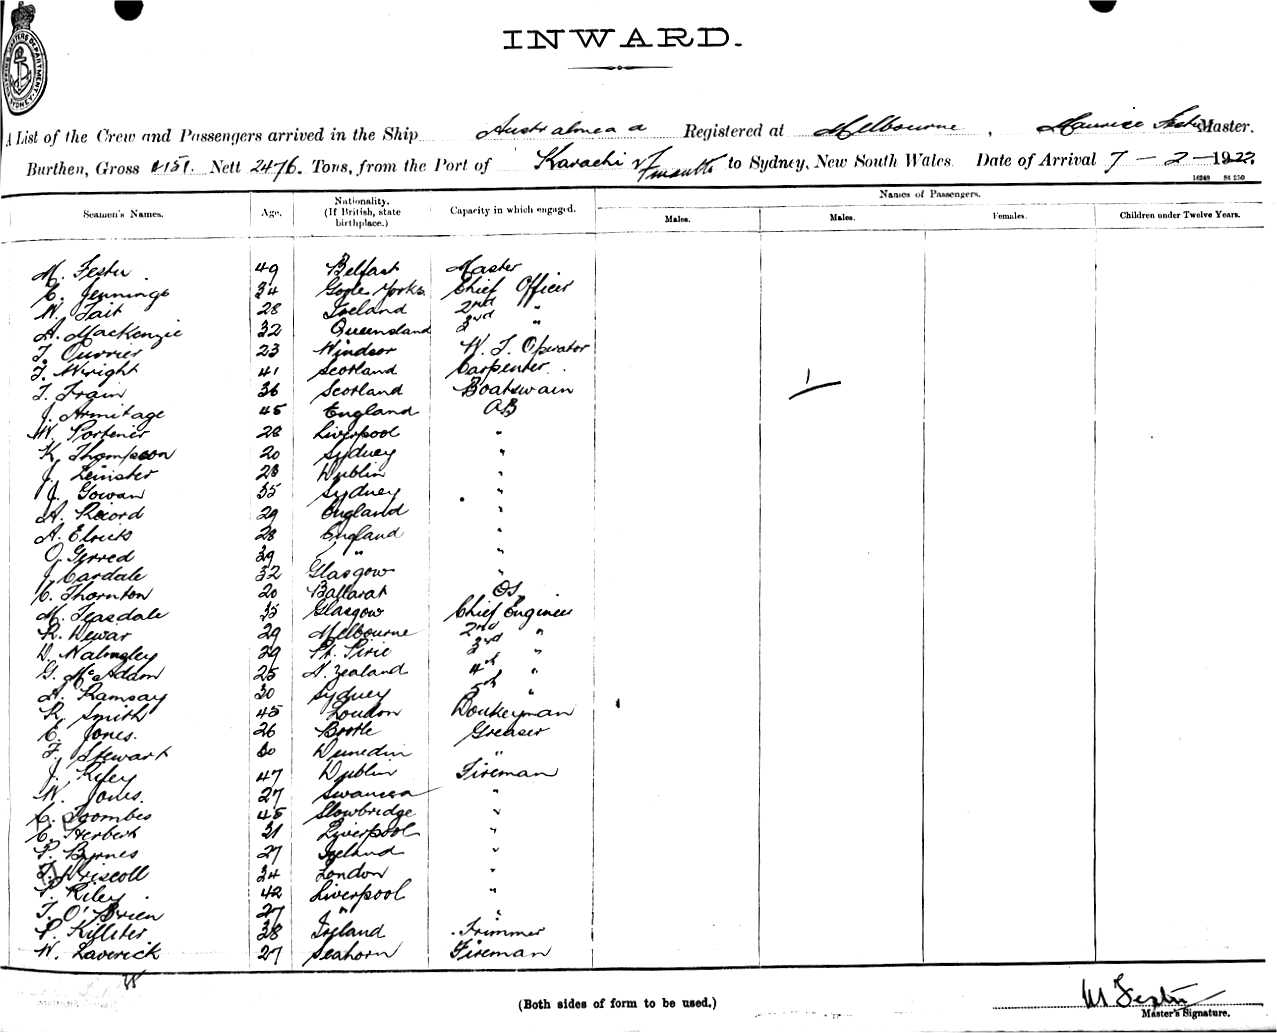 INWARD.
A List of the Crew and Passengers arrived in the Ship Australmead Registered at Melbourne, Maurice Master.
Burthen, Gross Nett 2476. Tons, from the Port of Karachi to Sydney, New South Wales. Date of Arrival 7-2-1922.
16249 St 250
Seamen's Names. Age. Nationality. (If British, state birthplace.) Capacity in which engaged. Names of Passengers.
Males. Males. Females. Children under Twelve Years.
M. Festu 49 Belfast Master
C. Jennings 34 Goole Yorks. Chief Officer
W. Tait 28 Ireland 2nd "
A. MacKenzie 32 Queensland 3rd "
T. Currier 23 Windsor W. T. Operator
T. Wright 41 Scotland Carpenter.
T. Train 36 Scotland Boatswain 1
J. Armitage 45 England AB
W. Portener 28 Liverpool "
K. Thompson 20 Sydney "
J. Leinster 28 Dublin "
J. Gowan 35 Sydney "
A. Record 29 England "
A. 28 England "
O. Gerred 39 " "
J. Cardale 32 Glasgow "
C. Thornton 20 Ballarat OS
M. Teasdale 35 Glasgow Chief Engineer
R. Dewar 29 Melbourne 2nd "
D. Walmsley 29 Pt. Pirie 3rd "
G. McAddam 25 N. Zealand 4th "
A. Ramsay 30 Sydney 5th "
R. Smith 45 London Donkeyman
C. Jones. 26 Bootle Greaser
F. Stewart 30 Dunedin "
J. Riley 47 Dublin Fireman
W. Jones. 27 Swansea "
C. Toombes 45 Stowbridge "
C. Herbert 31 Liverpool "
P. Byrnes 27 Ireland "
T. Driscoll 34 London "
T. Riley 42 Liverpool "
T. O'Brien 27 " "
P. Killiter 38 Ireland Trimmer
W. Laverick 27 Seahorn Fireman
(Both sides of form to be used.)
M Festu
Master's Signature.